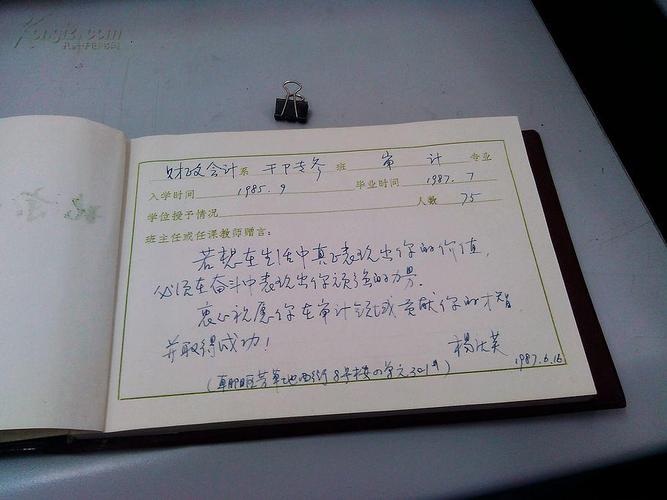 Kongfz.com
孔夫子旧书网
财政会计系 干户专修 班 审计 专业
入学时间 1985.9 毕业时间 1987.7
学位授予情况 人数 75
班主任或任课教师赠言:
若想在生活中真正表现出你的价值,
必须在奋斗中表现出你顽强的力男.
衷心祝愿你在审计领域贡献你的才智
并取得成功!
杨 英
1987.6.16
(朝阳区芳草地西街8号楼 单元301号)